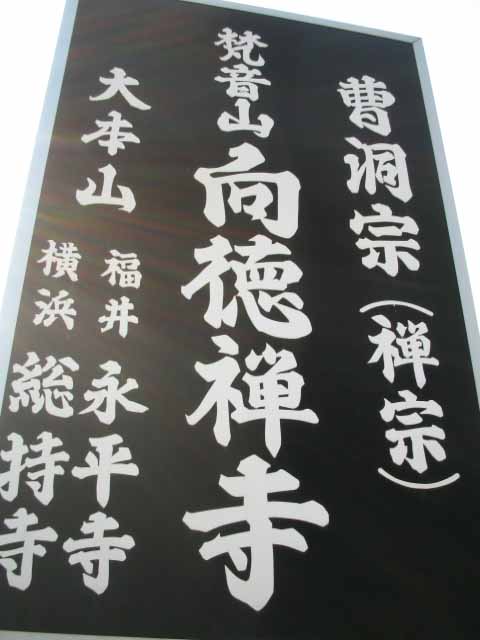 曹洞宗(禅宗)
梵音山向徳禅寺
大本山
福井永平寺
横浜総持寺